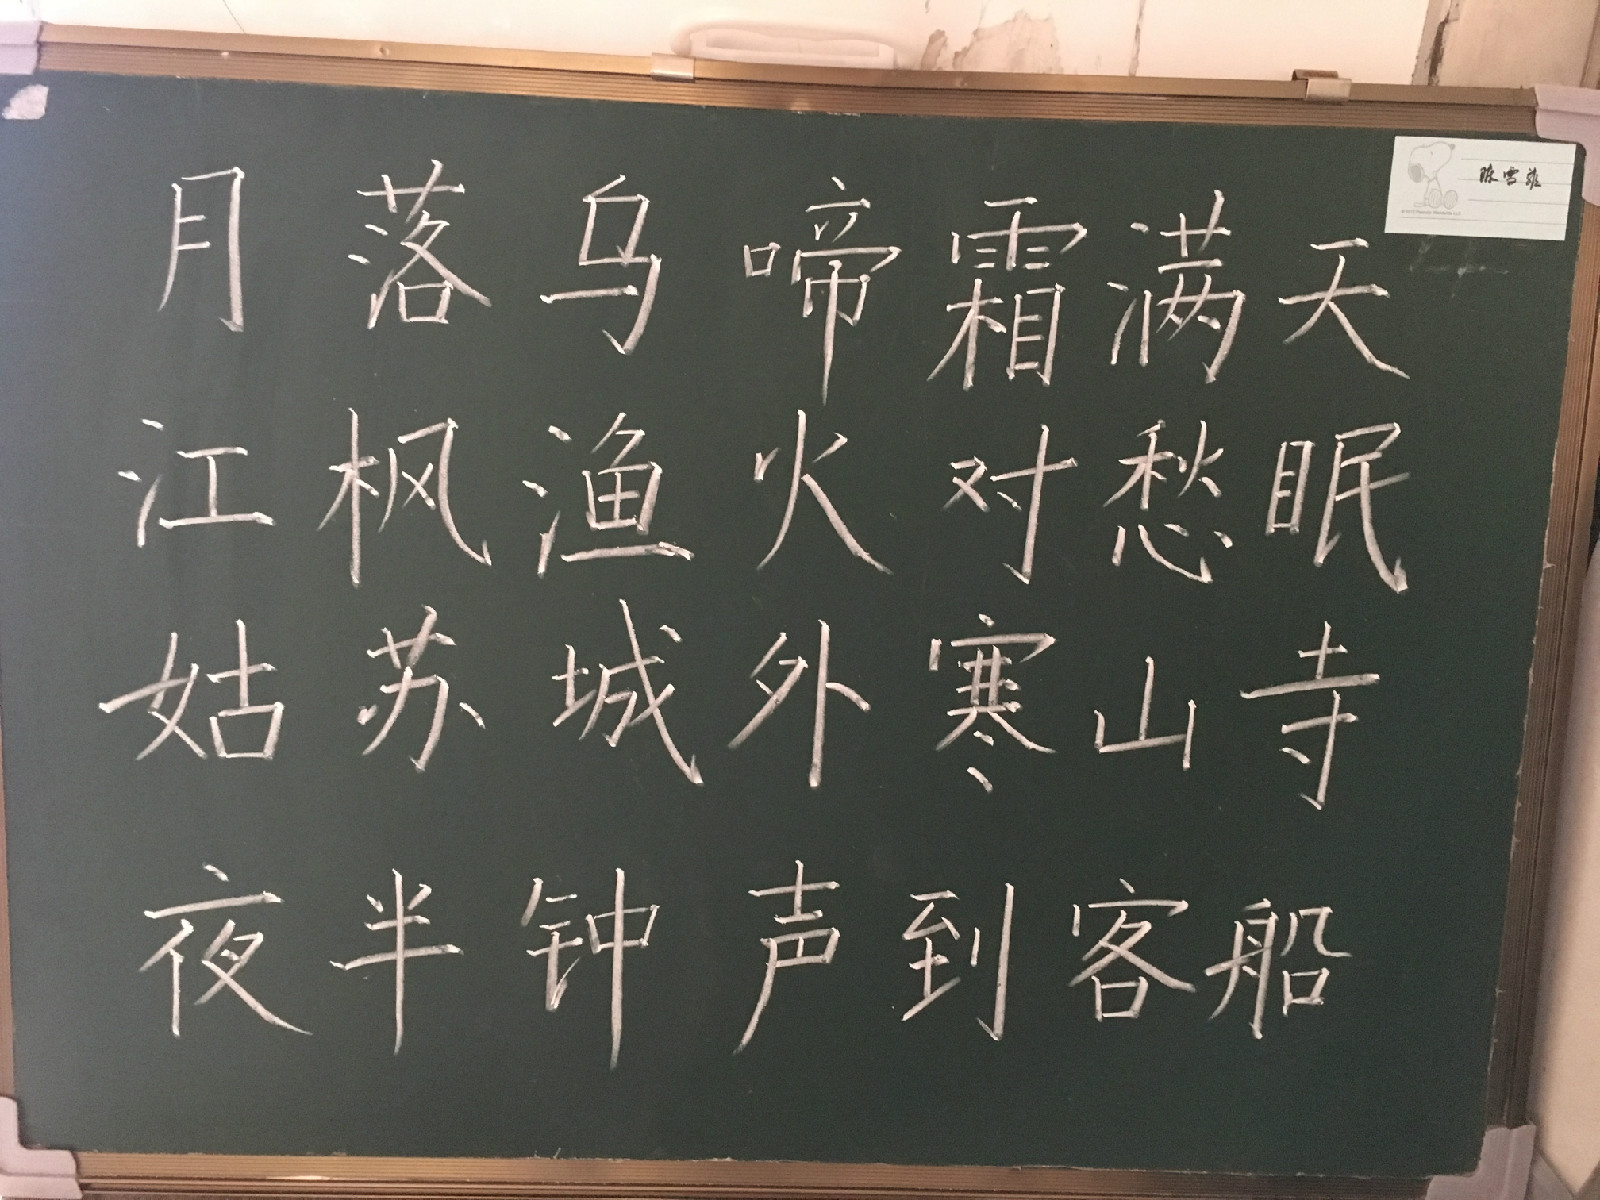 月落乌啼霜满天
江枫渔火对愁眠
姑苏城外寒山寺
夜半钟声到客船
陈雪菲